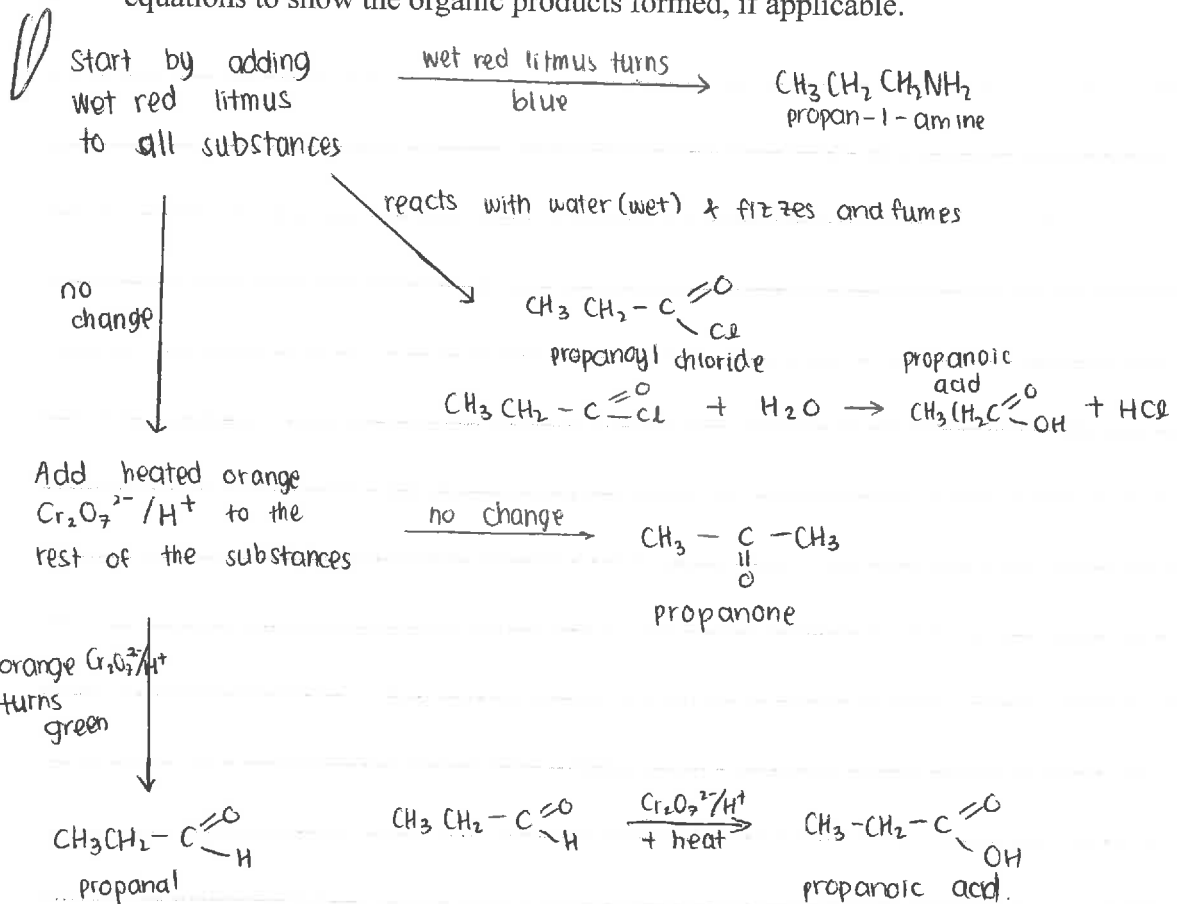 equations to show the organic products formed, if applicable.
Start by adding
wet red litmus
to all substances
wet red litmus turns
blue
CH₃ CH₂ CH₂NH₂
propan-1-amine
reacts with water (wet) & fizzes and fumes
no
change
CH₃ CH₂ - C =O
Cl
propanoyl chloride
propanoic
acid
CH₃ CH₂ - C =O - Cl + H₂O → CH₃CH₂C =O - OH + HCl
Add heated orange
Cr₂O₇²⁻ /H⁺ to the
rest of the substances
no change
CH₃ - C - CH₃
O
propanone
orange Cr₂O₇²⁻/H⁺
turns
green
CH₃CH₂ - C =O - H
propanal
CH₃ CH₂ - C =O - H
Cr₂O₇²⁻/H⁺
+ heat
CH₃ - CH₂ - C =O
OH
propanoic acid.